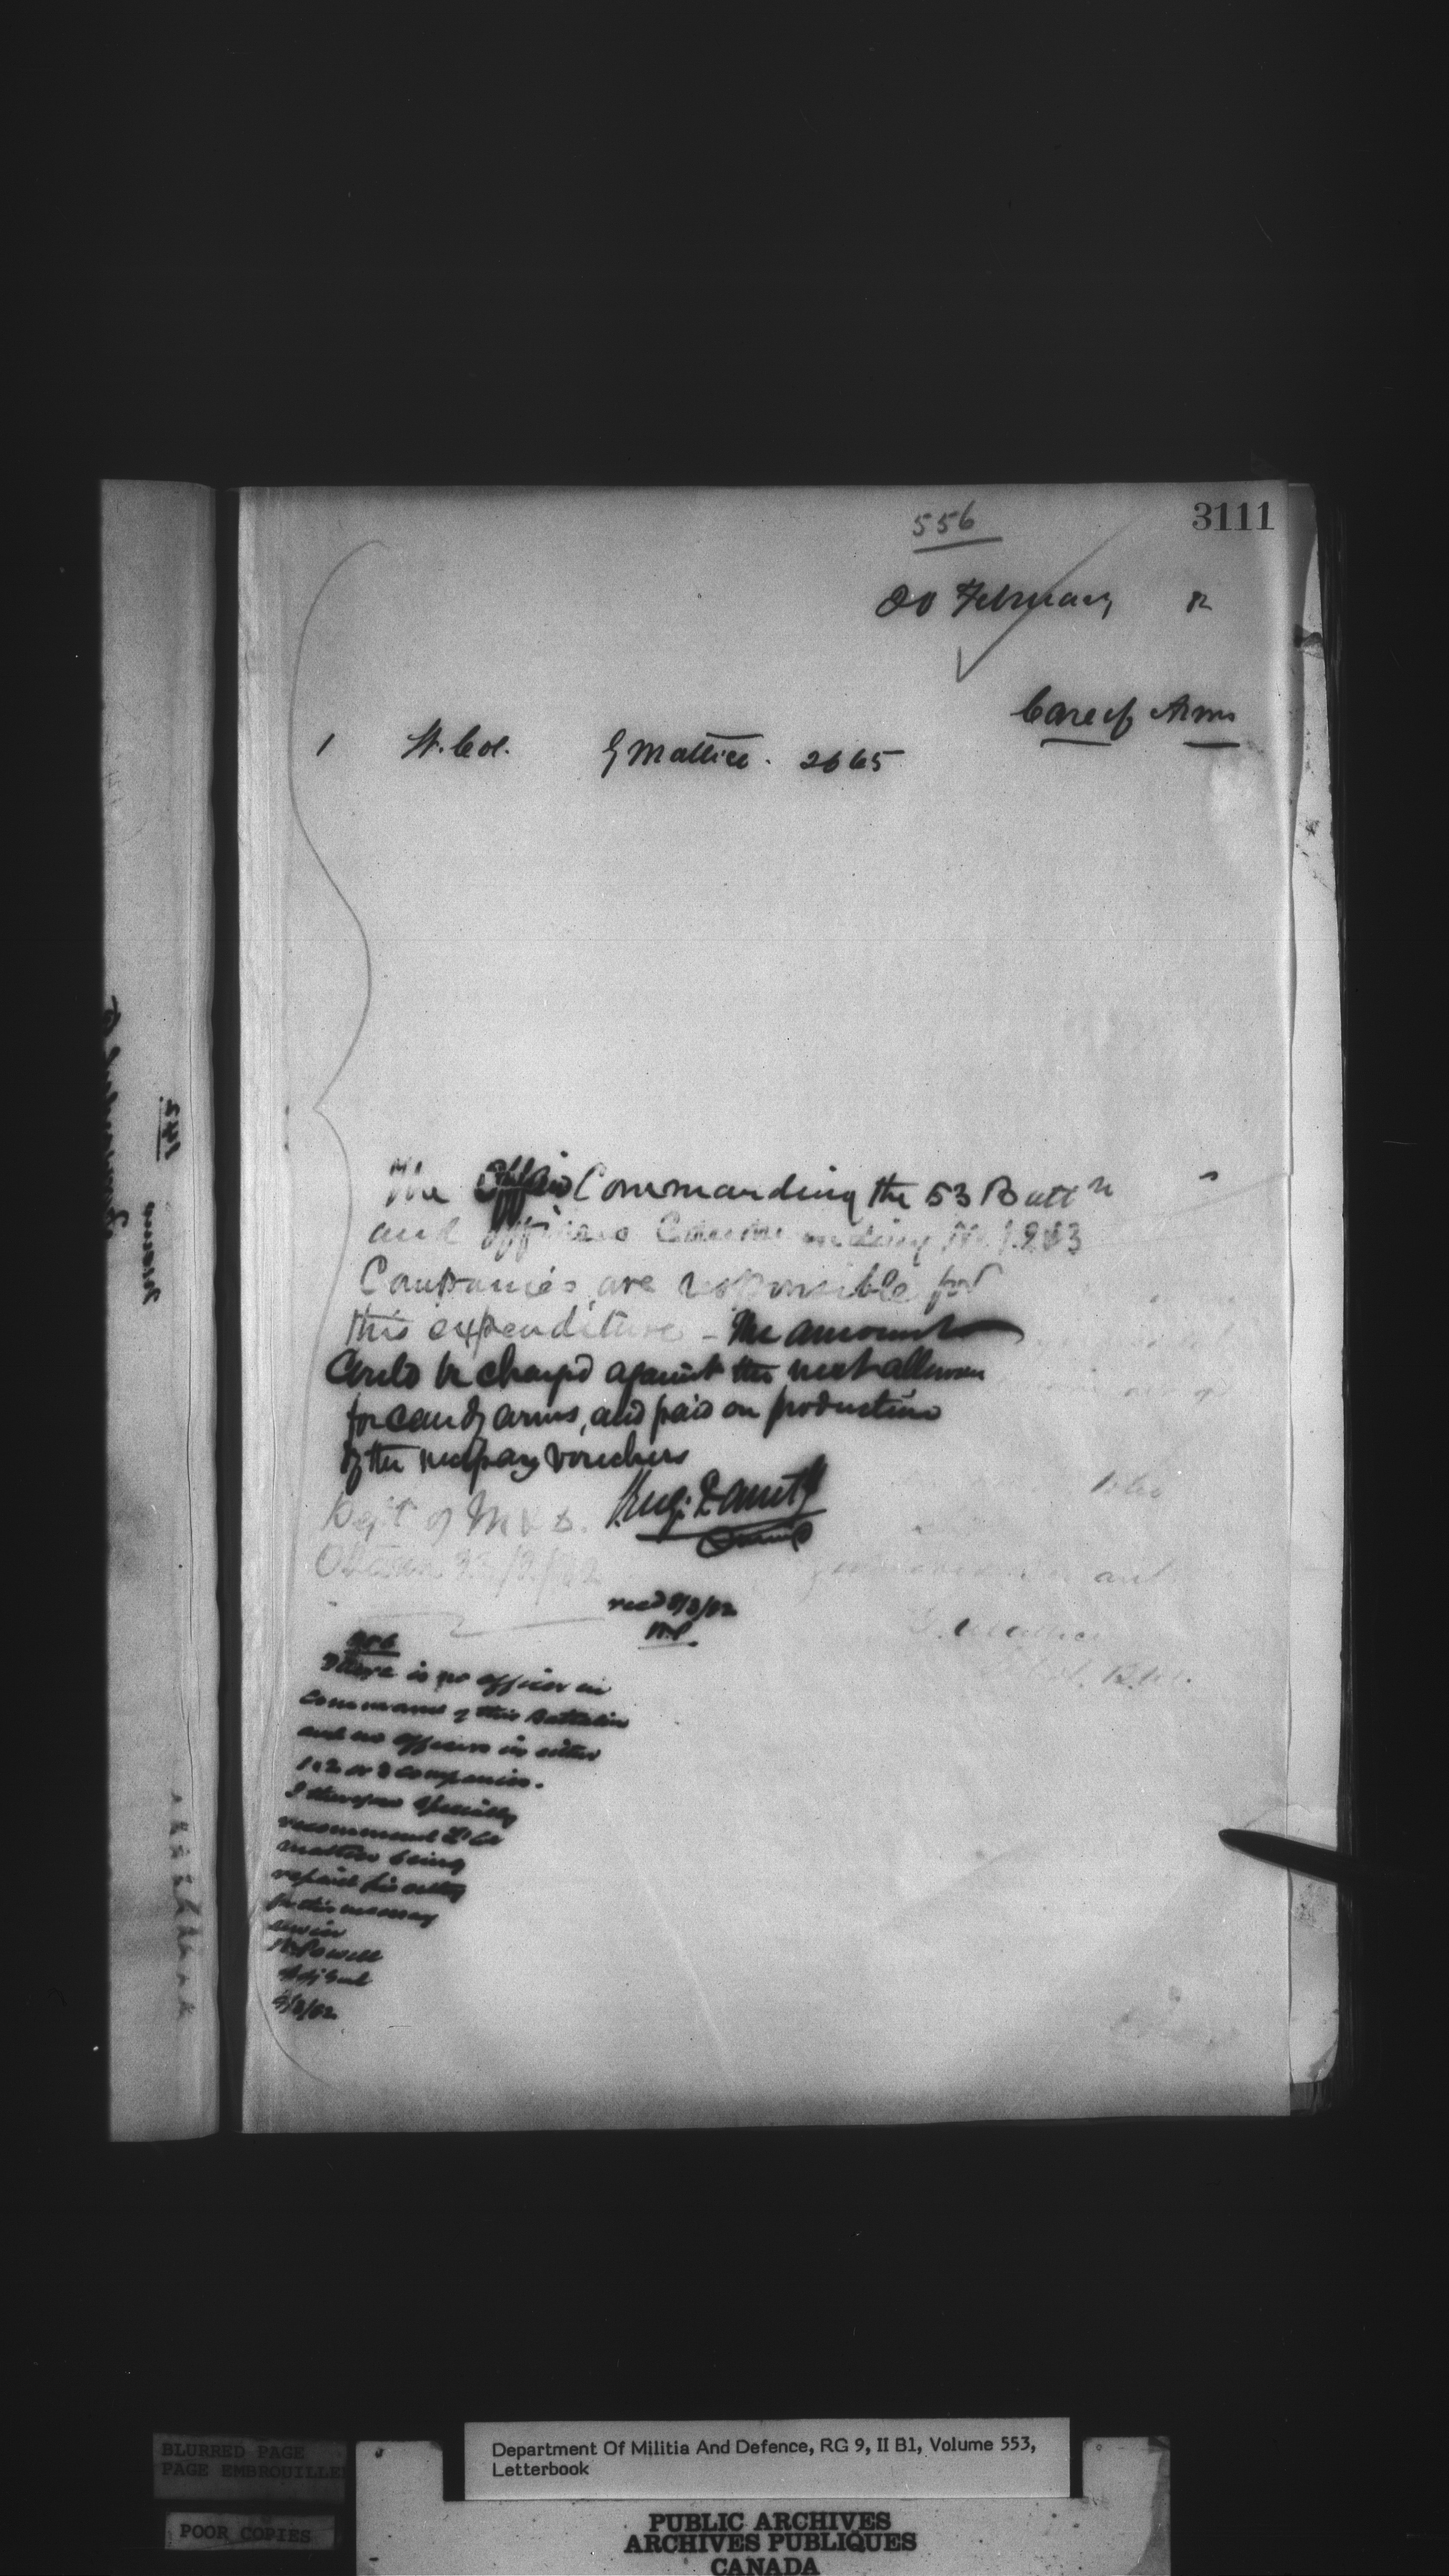 556
3111
20 February 82
Care of Arms
1 Lt. Col. G Mattice. 2665
The Officer Commanding the 53 Battn
and Officers Commanding No 1 2 & 3
Companies are responsible for
this expenditure - The amount
could be charged against the next allowance
for care of arms, and paid on production
of the necessary vouchers
Dept of M & D.
Ottawa /2/82
recd 8/3/82
W.P.
There is no officer in
command of this Battalion
and no officers in either
1, 2 or 3 companies.
I therefore specially
recommend Lt Col
Mattice being
repaid his outlay
for this necessary
service
W Powell
Adj Genl
9/3/82
Department Of Militia And Defence, RG 9, II B1, Volume 553,
Letterbook
BLURRED PAGE
PAGE EMBROUILLE
POOR COPIES
PUBLIC ARCHIVES
ARCHIVES PUBLIQUES
CANADA